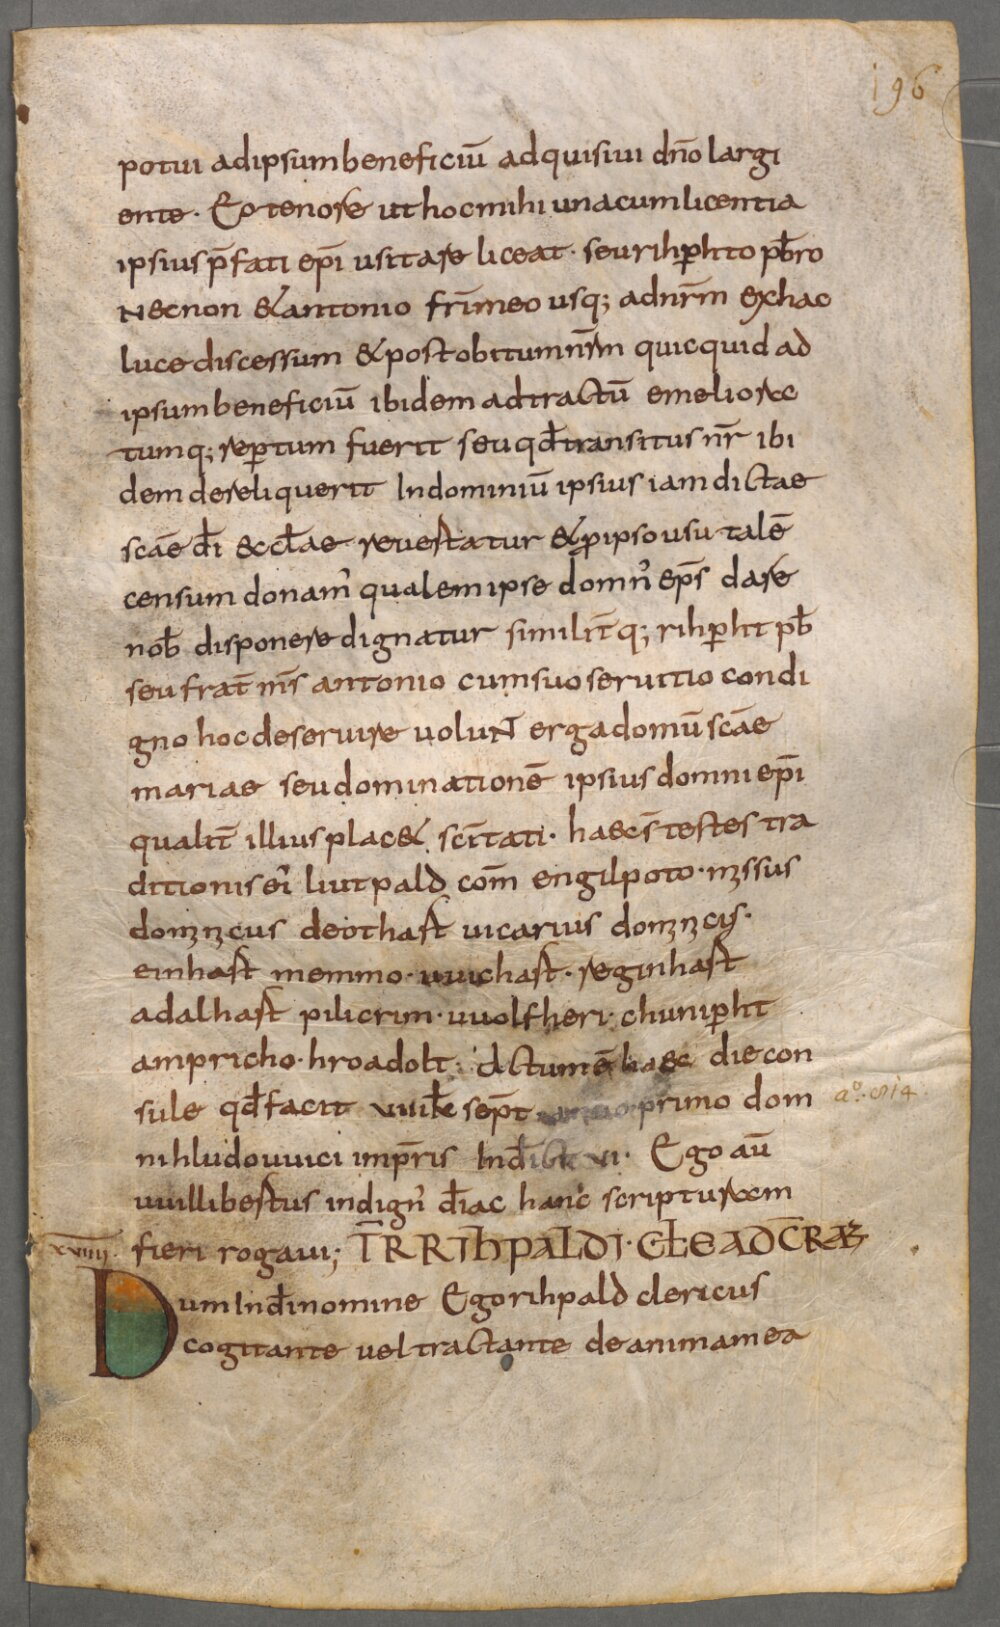 196
potui adipsumbeneficiū adquisiui dn̄o largi
ente· Eo tenore ut hoc mihi unacum licentia
ipsius p̄fati ep̄i usitare liceat· seu rihꝑhto pƀro
Necnon & antonio fr̄i meo usq; ad nr̄m exhac
luce discessum & post obitum nr̄m quicquid ad
ipsum beneficiū ibidem adtractū emeliorac
tumq; reꝑtum fuerit seu qđ transitus nr̄ ibi
dem dereliquerit In dominiū ipsius iam dictae
scāe dī eccƚae reuestatur & ꝓ ipso usu talē
censum donam' qualem ipse domn' ep̄s dare
noƀ disponere dignatur similit̄q; rihꝑht pƀ
seu frat̄ m̄s antonio cum suo seruitio condi
gno hoc deseruire uoluN erga domū scāe
mariae seu dominationē ipsius domni ep̄i
qualit̄ illius plac& sc̄itati· haec s̄ testes tra
ditionis eī liutpald com̄ engilpoto· missus
dominicus deothast uicarius dominicis·
einhast memmo· uuichast· reginhast
adalhast pilicrim· uuolfheri· chuniꝑht
ampricho· hroadolt· Actum ē haec die con
sule qđ facit viii kƚ sep̄t primo dom
a°· 814
ni hludouuici imp̄ris Indict vi· Ego aū
uuillibestus indign' điac hanc scripturam
xviiii· fieri rogaui; T̄R RIhPALDI· CƚE AD C̄RAZ
Dum In đi nomine Ego rihpald clericus
cogitante uel tractante de anima mea